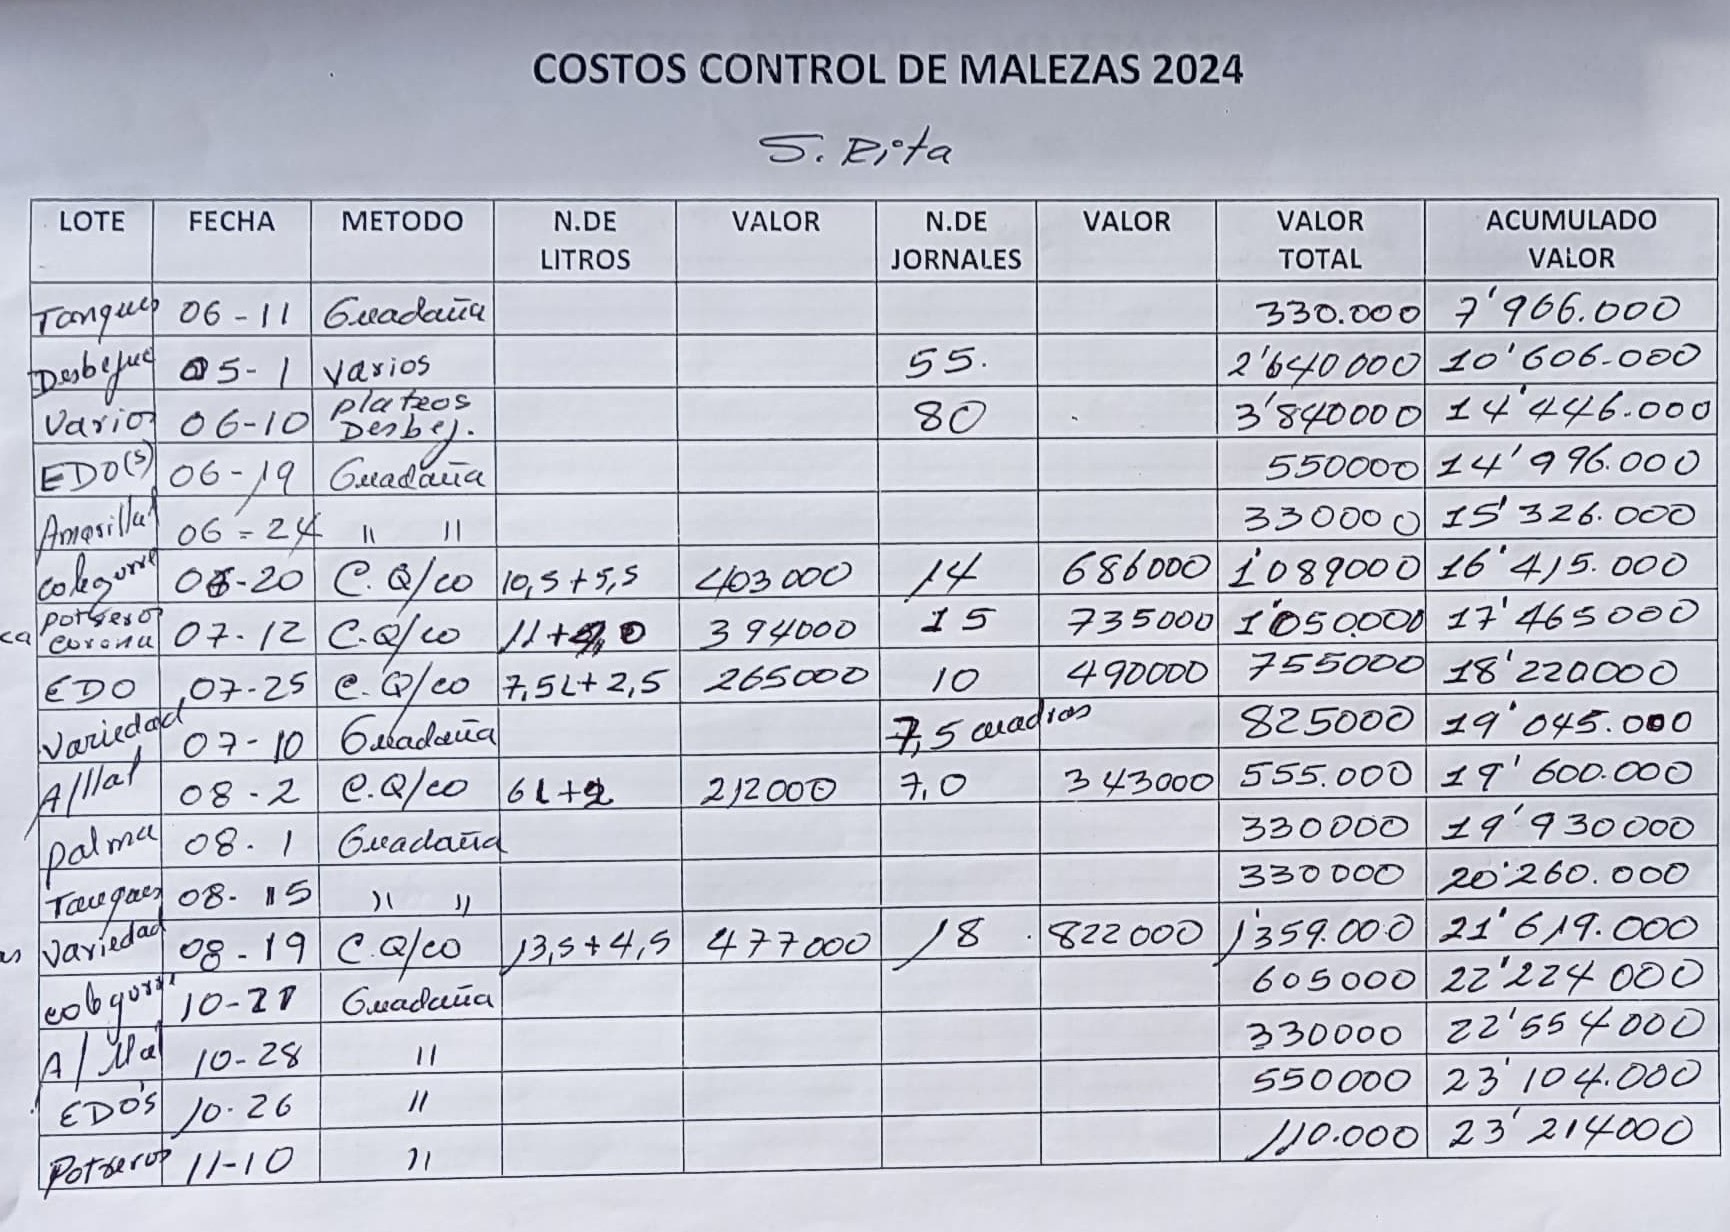 COSTOS CONTROL DE MALEZAS 2024
S. Rita
LOTE FECHA METODO N.DE LITROS VALOR N.DE JORNALES VALOR VALOR TOTAL ACUMULADO VALOR
Tanques 06-11 Guadaña 330.000 7'966.000
Desbejuc 05-1 varios 55. 2'640000 10'606.000
Varios 06-10 plateos Desbej. 80 3'840000 14'446.000
EDO(s) 06-19 Guadaña 550000 14'996.000
Amarilla 06-24 " " 330000 15'326.000
06-20 C.Q/co 10,5+5,5 403000 14 686000 1'089000 16'415.000
ca potrero corona 07-12 C.Q/co 11+ 394000 15 735000 1'050.000 17'465000
EDO 07-25 C.Q/co 7,5L+2,5 265000 10 490000 755000 18'220000
Variedad 07-10 Guadaña 7,5 cuadras 825000 19'045.000
A/llal 08-2 C.Q/co 6L+2 212000 7,0 343000 555.000 19'600.000
palma 08.1 Guadaña 330000 19'930000
Tanques 08-15 " " 330000 20'260.000
as Variedad 08-19 C.Q/co 13,5+4,5 477000 18 822000 1'359.000 21'619.000
10-21 Guadaña 605000 22'224000
A/llal 10-28 " 330000 22'554000
EDO'S 10-26 " 550000 23'104.000
Potreros 11-10 " 110.000 23'214000